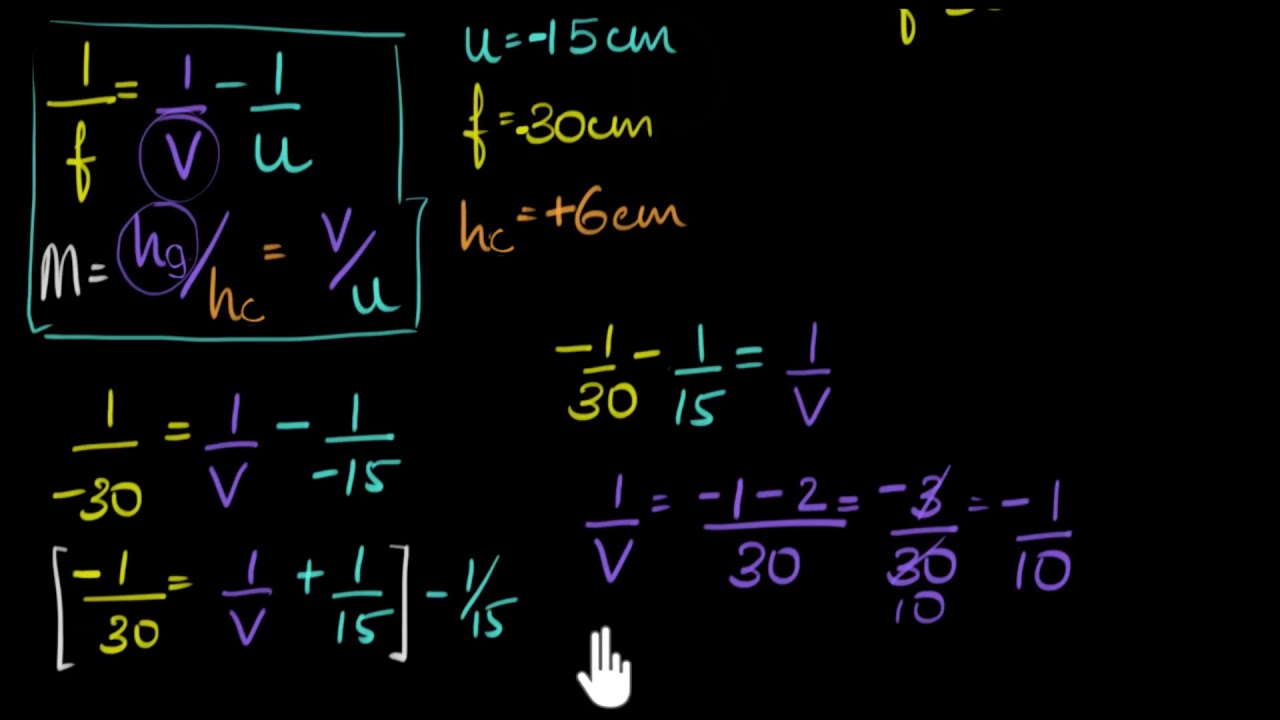 1/f = 1/v - 1/u
m = hg/hc = v/u
u = -15cm
f = -30cm
hc = +6cm
1/-30 = 1/v - 1/-15
[-1/30 = 1/v + 1/15] - 1/15
-1/30 - 1/15 = 1/v
1/v = -1-2/30 = -3/30 10 = -1/10